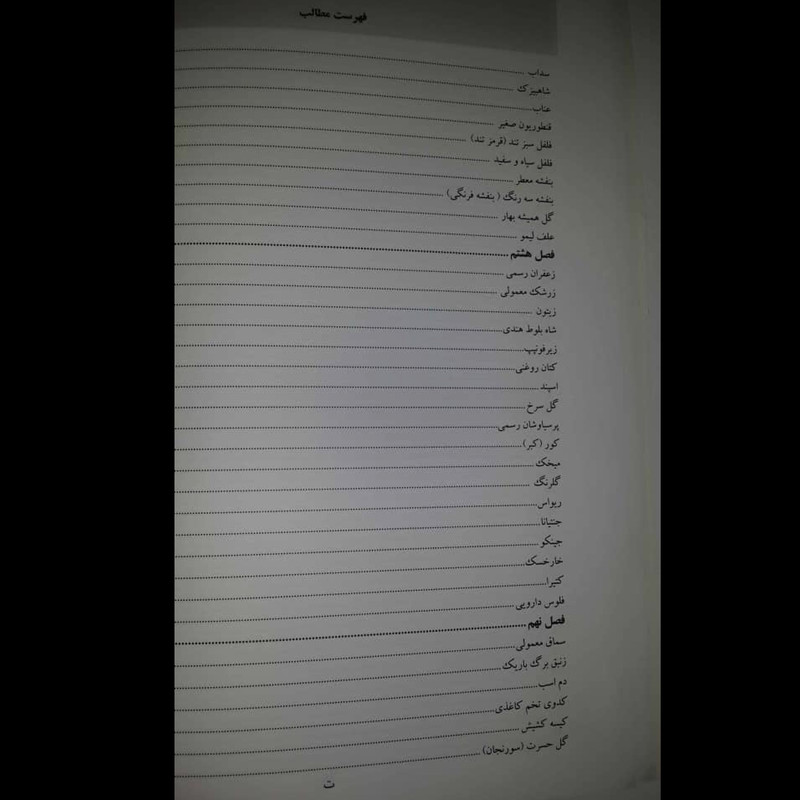 فهرست مطالب
سداب
شاهبیزک
عناب
قنطوریون صغیر
فلفل سبز تند (قرمز تند)
فلفل سیاه و سفید
بنفشه معطر
بنفشه سه رنگ ( بنفشه فرنگی)
گل همیشه بهار
علف لیمو
فصل هشتم
زعفران رسمی
زرشک معمولی
زیتون
شاه بلوط هندی
زیرفونیپ
کتان روغنی
اسپند
گل سرخ
پرسیاوشان رسمی
کور (کبر)
میخک
گلرنگ
ریواس
جنتیانا
جینکو
خارخسک
کتیرا
فلوس دارویی
فصل نهم
سماق معمولی
زنبق برگ باریک
دم اسب
کدوی تخم کاغذی
کیسه کشیش
گل حسرت (سورنجان)
ت